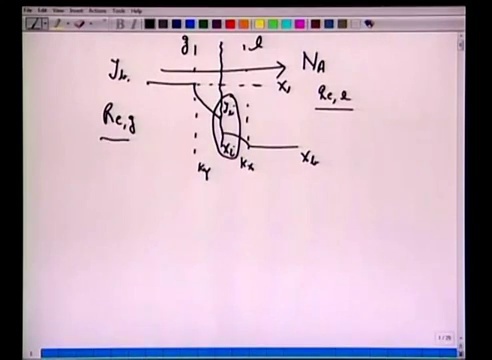 File Edit View Insert Actions Tools Help
g l
y_b N_A
x_i
Re,g Re,l
y_i
x_i
k_y k_x x_b
1/25